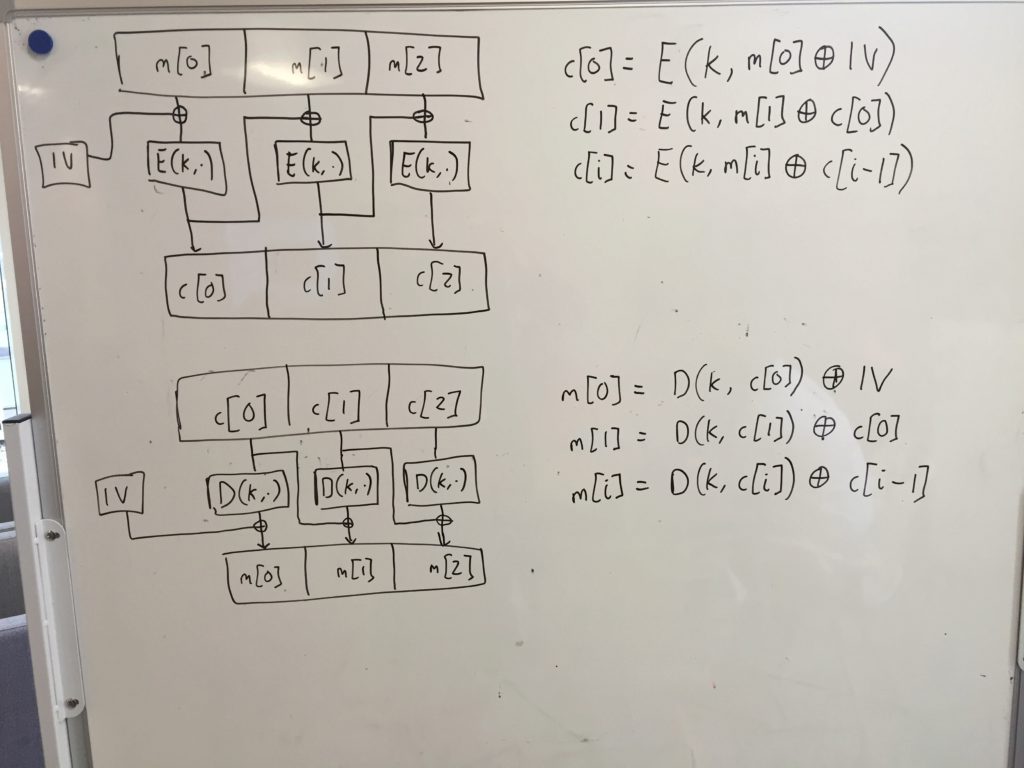 m[0] m[1] m[2]
IV
E(k,·) E(k,·) E(k,·)
c[0] c[1] c[2]
c[0] = E(k, m[0] ⊕ IV)
c[1] = E(k, m[1] ⊕ c[0])
c[i] = E(k, m[i] ⊕ c[i-1])
c[0] c[1] c[2]
IV
D(k,·) D(k,·) D(k,·)
m[0] m[1] m[2]
m[0] = D(k, c[0]) ⊕ IV
m[1] = D(k, c[1]) ⊕ c[0]
m[i] = D(k, c[i]) ⊕ c[i-1]